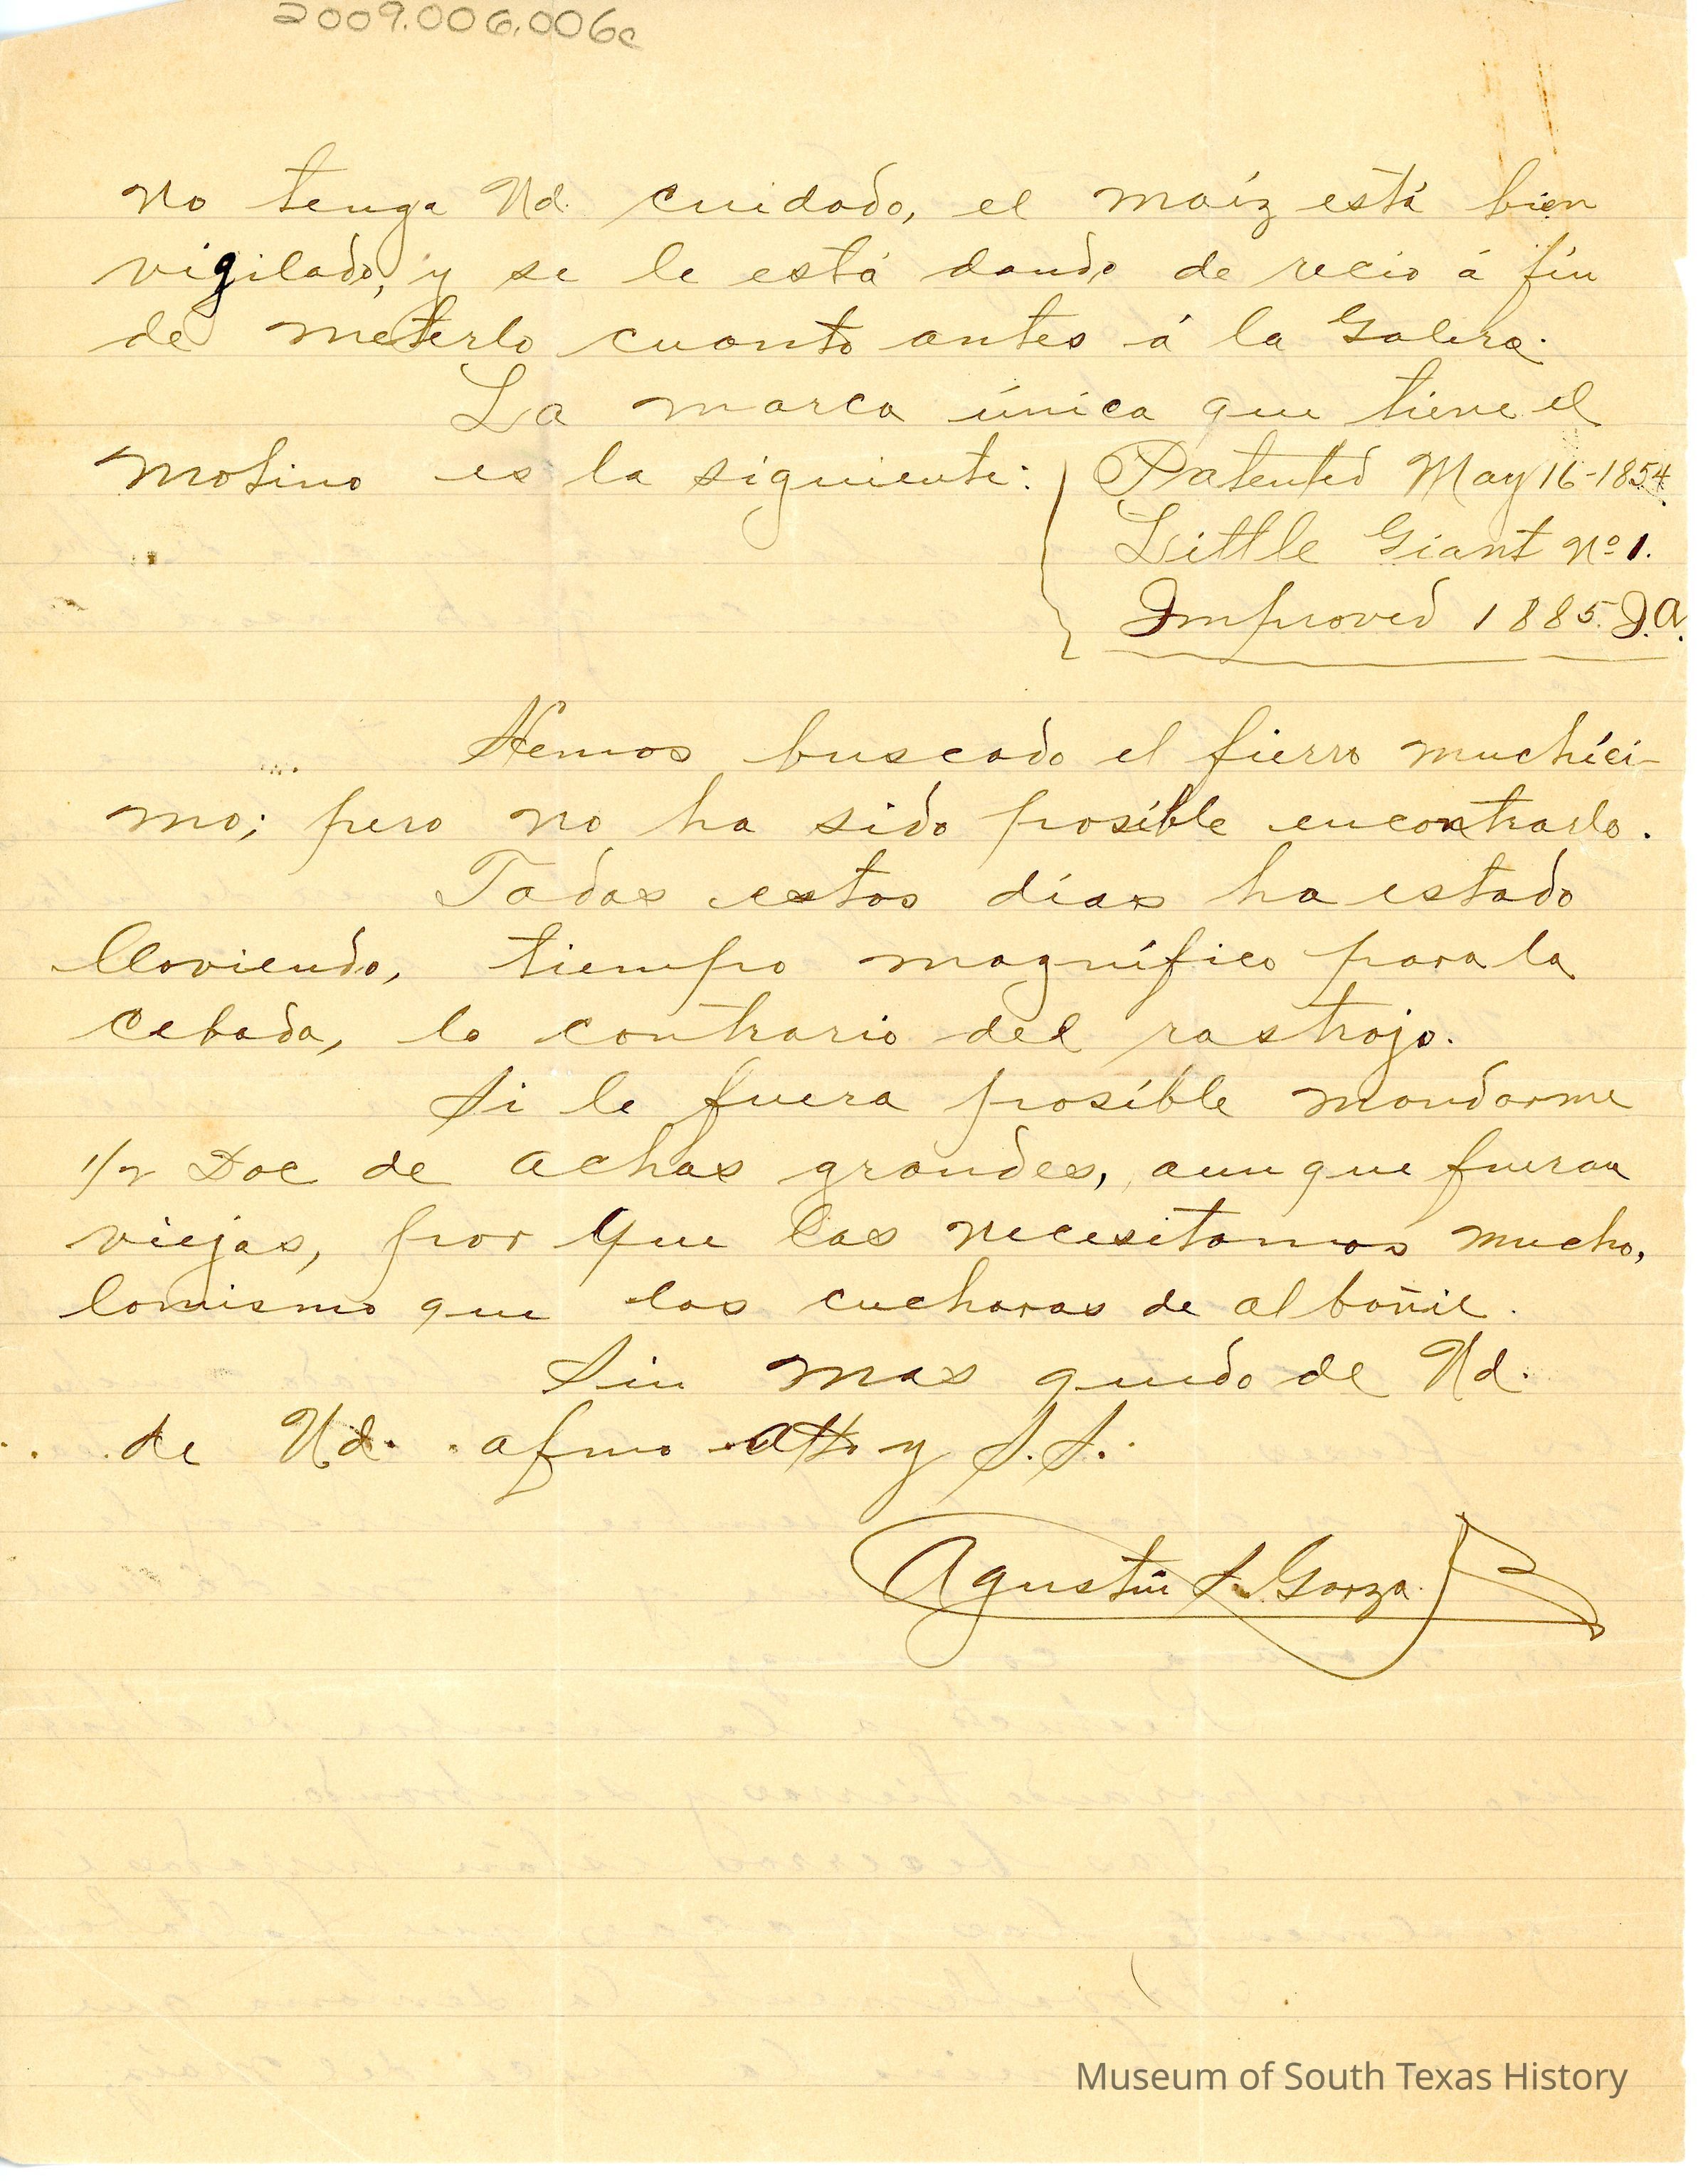 2009.006.006c
no tenga Ud. cuidado, el maíz está bien
vigilado, y se le está dando de recio á fin
de meterlo cuanto antes á la Galera.
La marca única que tiene el
Molino es la siguiente: Patented May 16-1854.
Little Giant Nº 1.
Improved 1885. J.A.
Hemos buscado el fierro muchíci-
mo; pero no ha sido posíble encontrarlo.
Todos estos días ha estado
lloviendo, tiempo magnífico para la
Cebada, lo contrario del rastrojo.
Si le fuera posíble mandarme
1/2 Doc de achas grandes, aunque fueran
viejas, por que las necesitamos mucho,
lomismo que las cucharas de albañil.
Sin mas quedo de Ud.
de Ud. afmo atto y S.S.
Agustín S. Garza
Museum of South Texas History